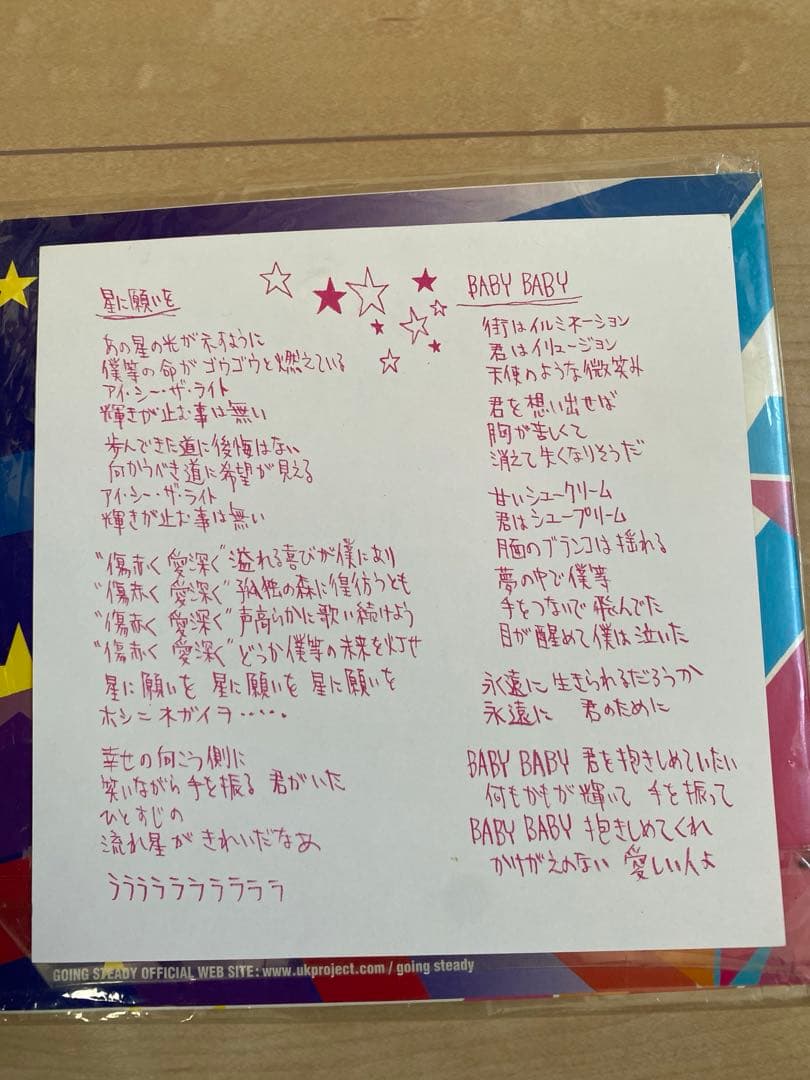 星に願いを
あの星の光が示すように
僕等の命がゴウゴウと燃えている
アイ・シー・ザ・ライト
輝きが止む事は無い
歩んできた道に後悔はない
向かうべき道に希望が見える
アイ・シー・ザ・ライト
輝きが止む事は無い
“傷赤く 愛深く”溢れる喜びが僕にあり
“傷赤く 愛深く”孤独の森に徨彷うとも
“傷赤く 愛深く”声高らかに歌い続けよう
“傷赤く 愛深く”どうか僕等の未来を灯せ
星に願いを 星に願いを 星に願いを
ホシニネガイヲ・・・・・
幸せの向こう側に
笑いながら手を振る 君がいた
ひとすじの
流れ星が きれいだなあ
うううううラララララ
BABY BABY
街はイルミネーション
君はイリュージョン
天使のような微笑み
君を想い出せば
胸が苦しくて
消えて失くなりそうだ
甘いシュークリーム
君はシュープリーム
月面のブランコは揺れる
夢の中で僕等
手をつないで飛んでた
目が醒めて僕は泣いた
永遠に生きられるだろうか
永遠に 君のために
BABY BABY 君を抱きしめていたい
何もかもが輝いて 手を振って
BABY BABY 抱きしめてくれ
かけがえのない 愛しい人よ
GOING STEADY OFFICIAL WEB SITE : www.ukproject.com / going steady